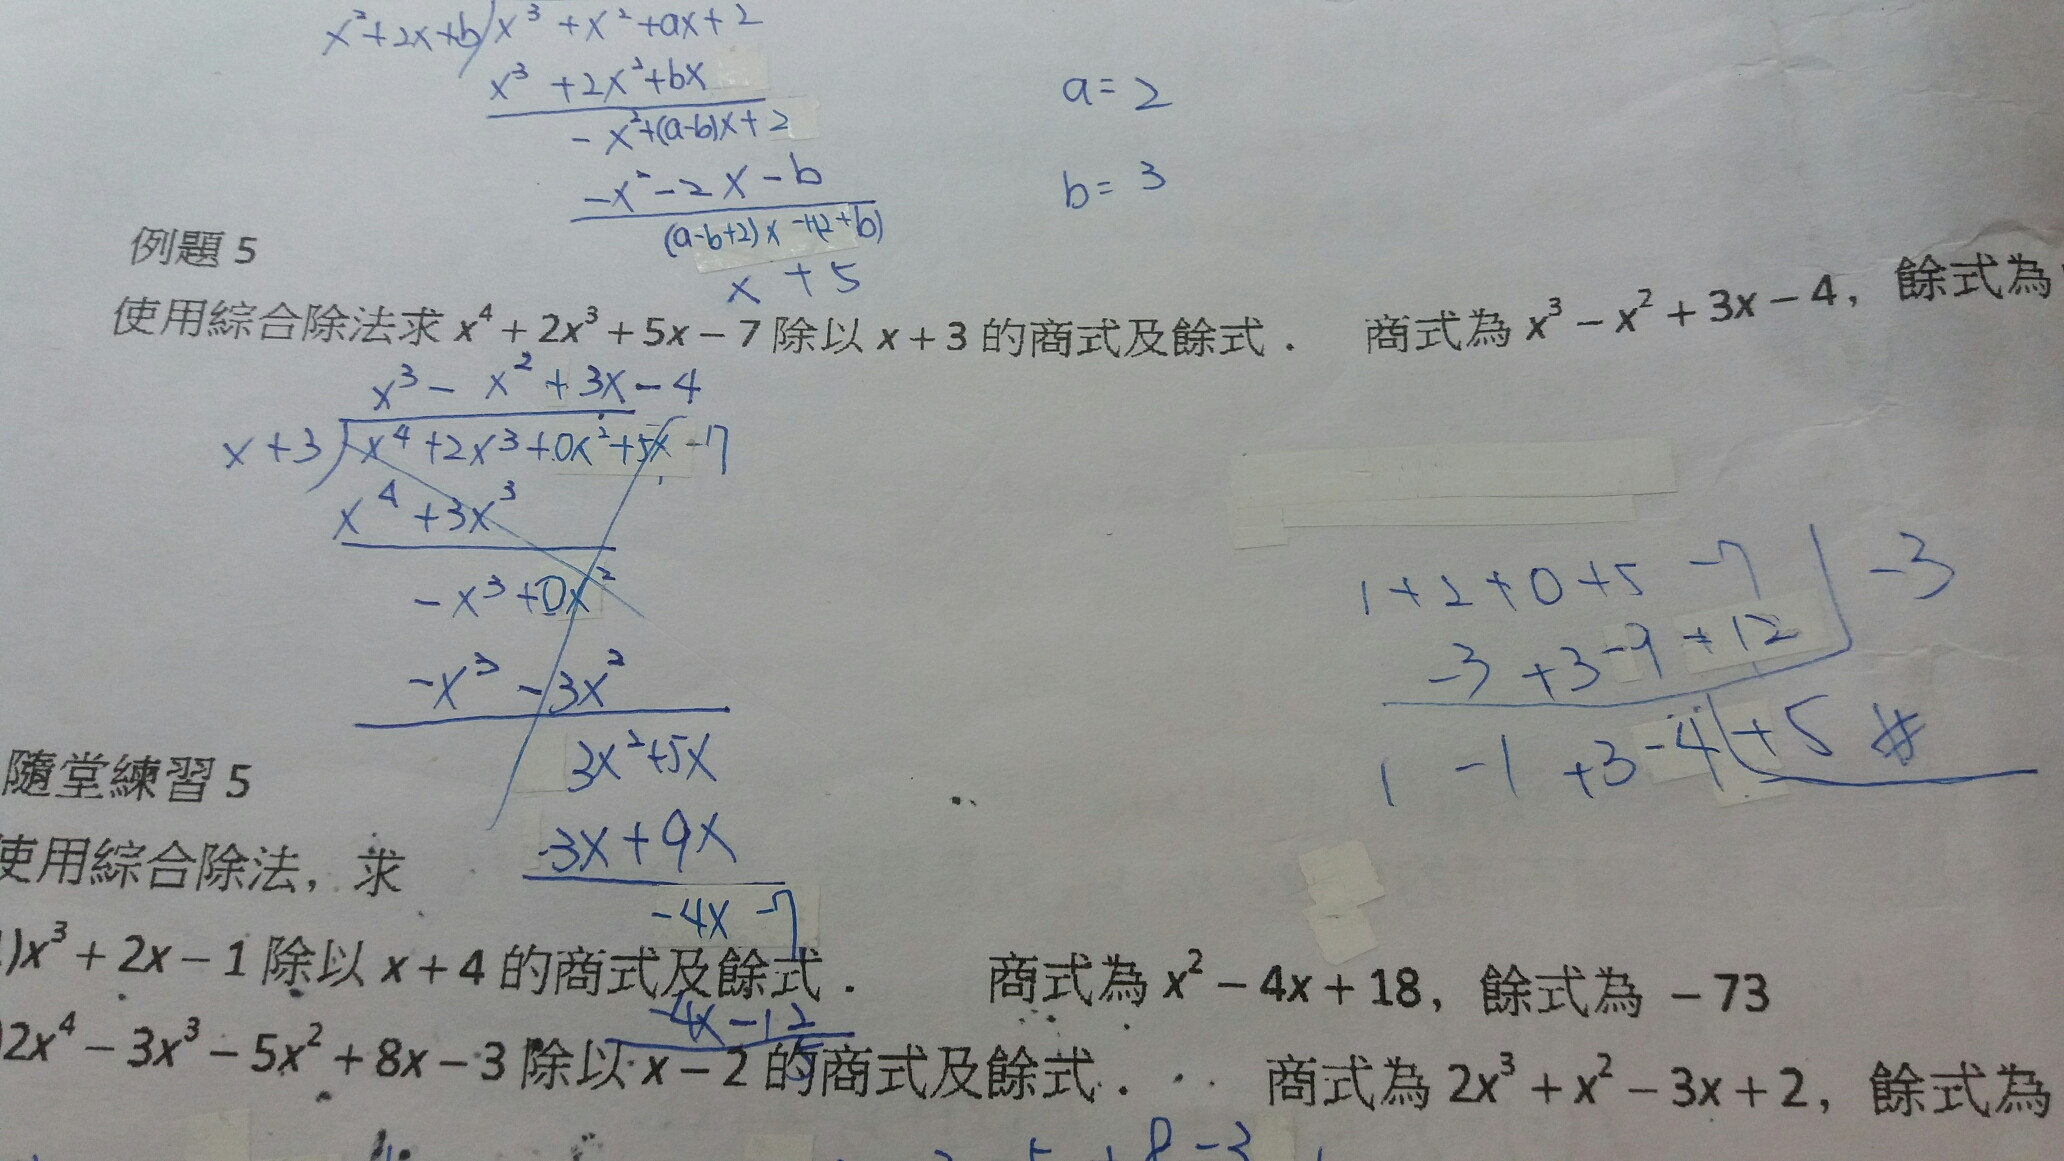 x²+2x+b) x³+x²+ax+2
x³+2x²+bx
-x²+(a-b)x+2
-x²-2x-b
(a-b+2)x
x+5
a=2
b=3
例題 5
使用綜合除法求 x⁴ + 2x³ + 5x − 7 除以 x + 3 的商式及餘式． 商式為 x³ − x² + 3x − 4，餘式為
x³ - x² + 3x - 4
x+3) x⁴+2x³+0x²+5x-7
x⁴+3x³
-x³+0x²
-x³-3x²
3x²+5x
3x+9x
-4x-7
-4x-12
5
1+2+0+5-7 | -3
-3+3-9+12
1 -1 +3 -4 +5
隨堂練習 5
使用綜合除法，求
)x³ + 2x − 1 除以 x + 4 的商式及餘式． 商式為 x² − 4x + 18，餘式為 − 73
)2x⁴ − 3x³ − 5x² + 8x − 3 除以 x − 2 的商式及餘式． 商式為 2x³ + x² − 3x + 2，餘式為
+8-3